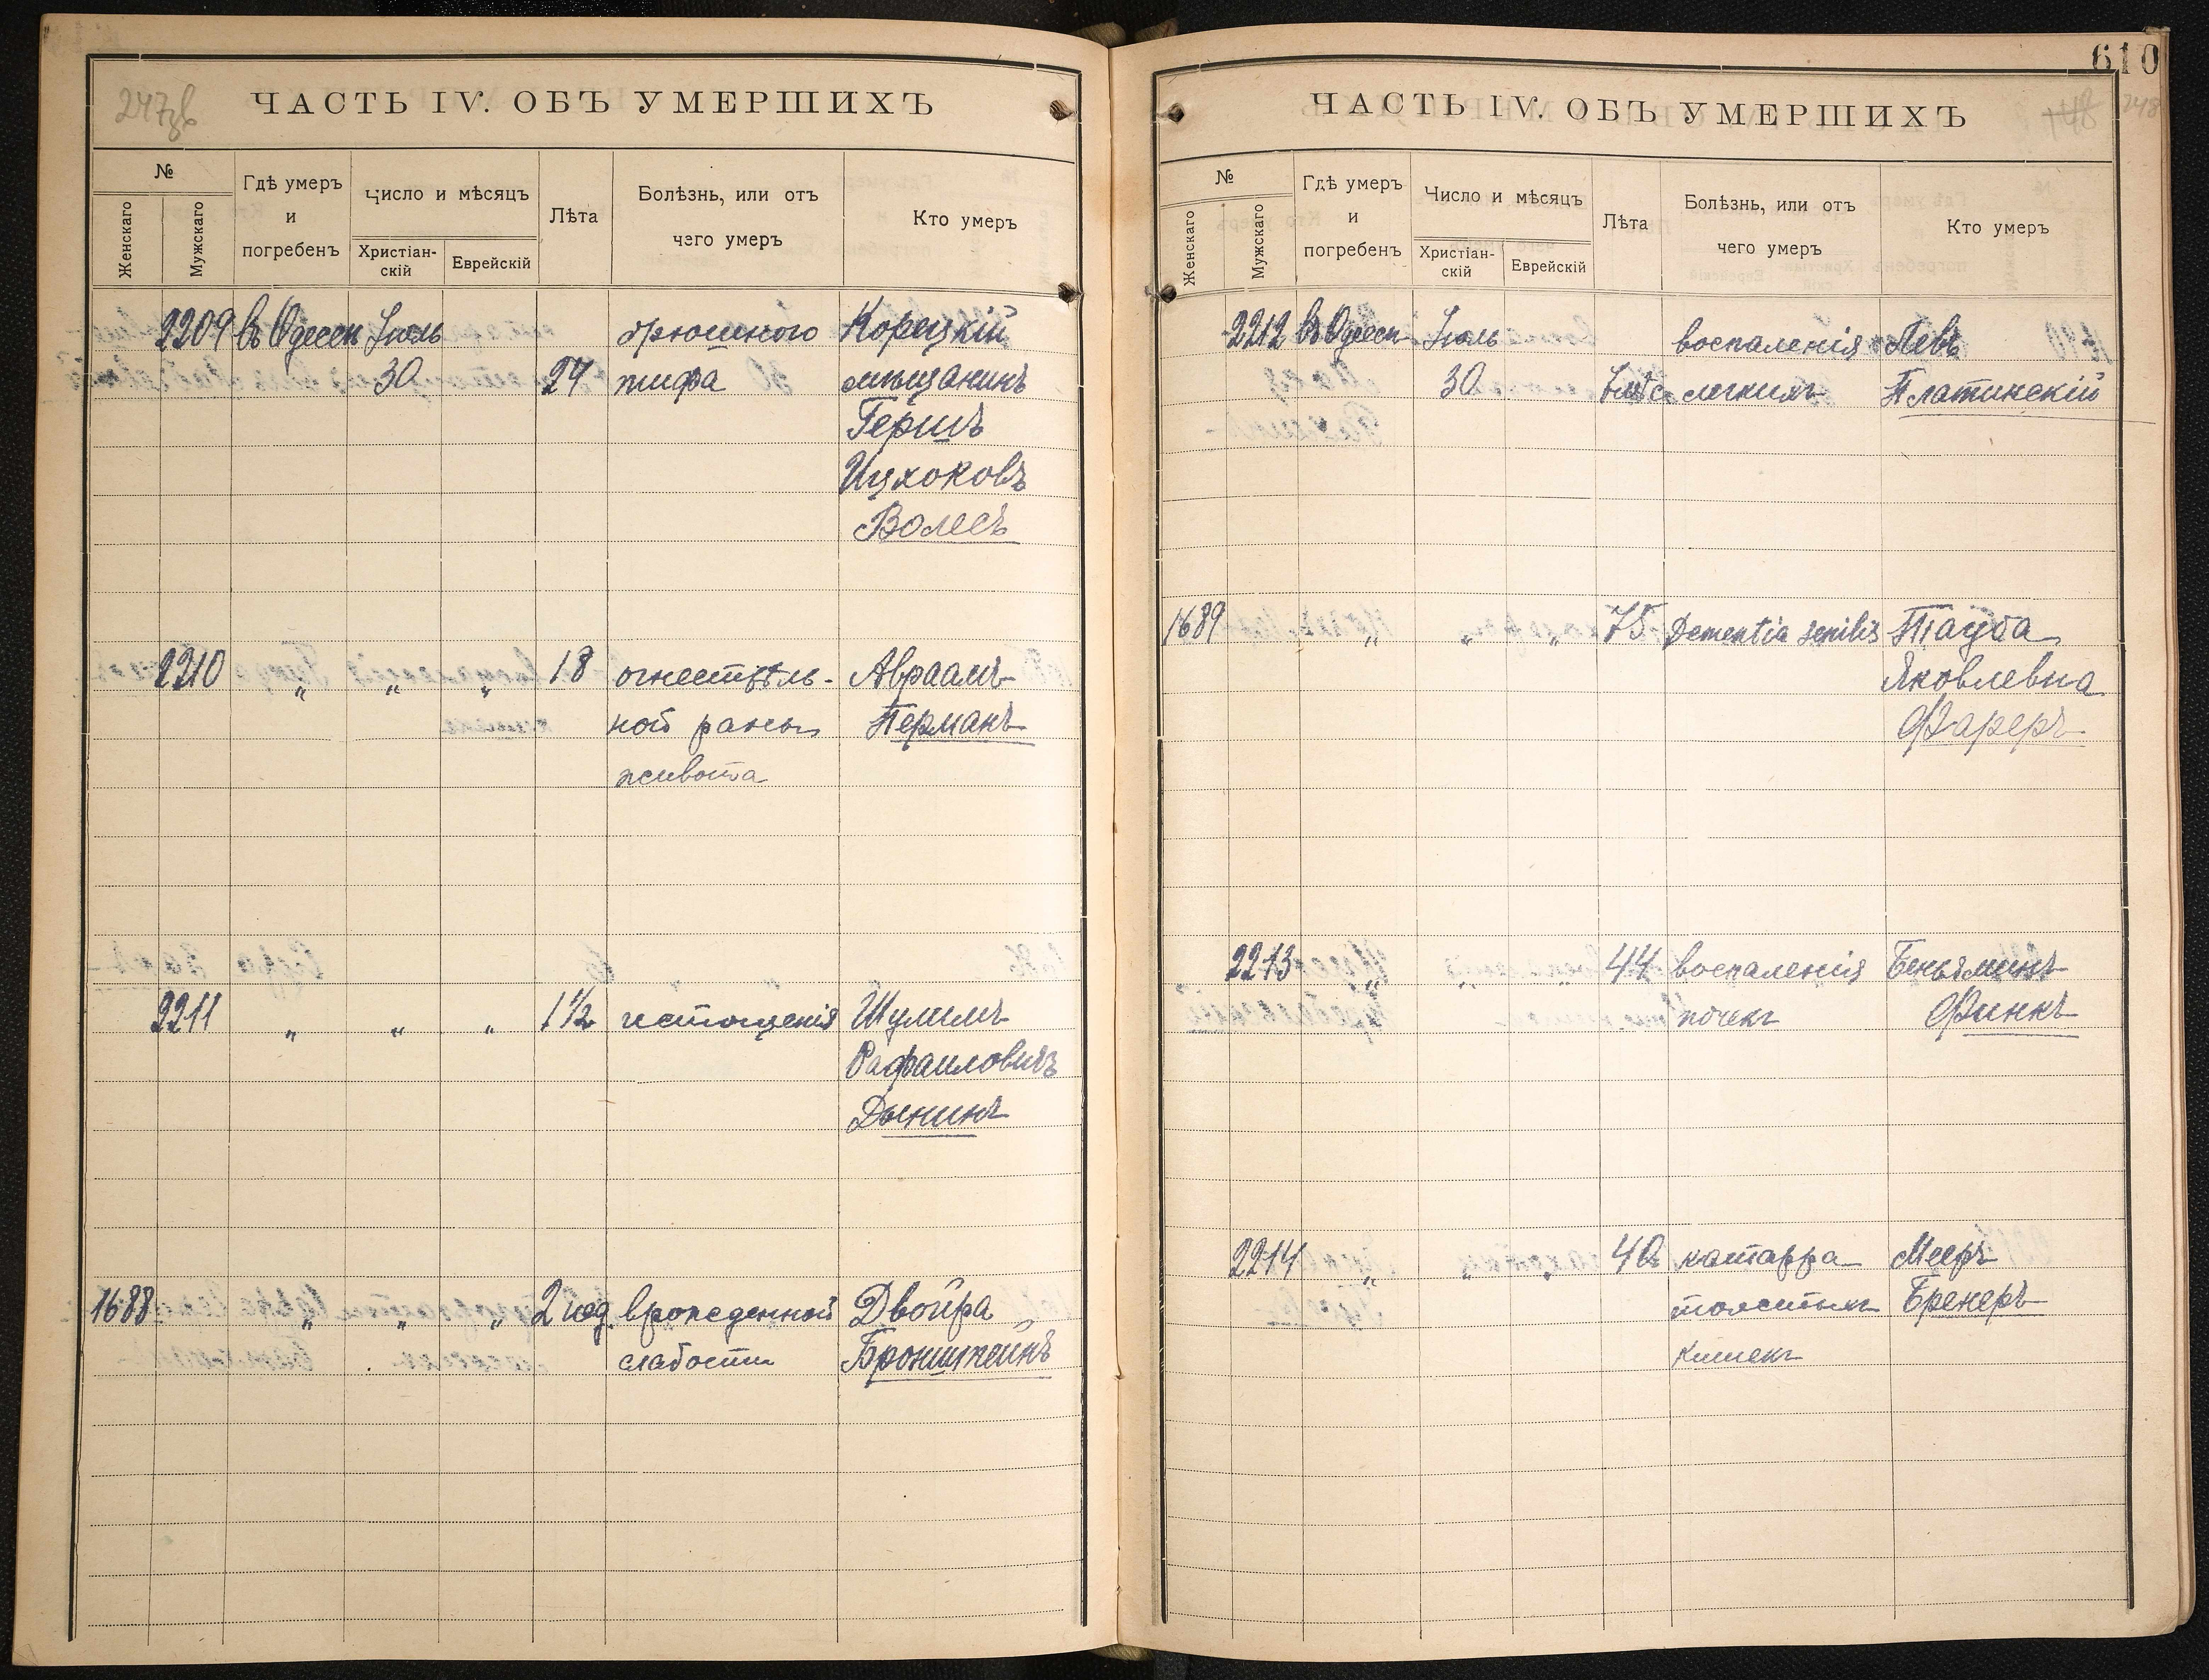 247зв
ЧАСТЬ IV. ОБЪ УМЕРШИХЪ
№
Женскаго
Мужскаго
Гдѣ умеръ
и
погребенъ
Число и мѣсяцъ
Христіан-
скій
Еврейскій
Лѣта
Болѣзнь, или отъ
чего умеръ
Кто умеръ
2209 въ Одессѣ Іюль брюшного Корецкій
30 24 тифа мѣщанинъ
Гершъ
Ицхоковъ
Волесъ
2210 „ „ „ 18 огнестрѣль- Авраамъ
ной раны Перманъ
живота
2211 „ „ „ 1½ истощенія Шулимъ
Рафаиловичъ
Дынинъ
1688 „ „ „ 2 нед. врожденной Двойра
слабости Бронштейнъ
610
248
ЧАСТЬ IV. ОБЪ УМЕРШИХЪ
№
Женскаго
Мужскаго
Гдѣ умеръ
и
погребенъ
Число и мѣсяцъ
Христіан-
скій
Еврейскій
Лѣта
Болѣзнь, или отъ
чего умеръ
Кто умеръ
2212 въ Одессѣ Іюль воспаленія Левъ
30 легкихъ Платинскій
1689 „ „ „ 75 Dementia senilis Тауба
Яковлевна
Фареръ
2213 „ „ „ 44 воспаленія Беньяминъ
почекъ Финкъ
2214 „ „ „ 40 катарра Мееръ
толстыхъ Бренеръ
кишекъ